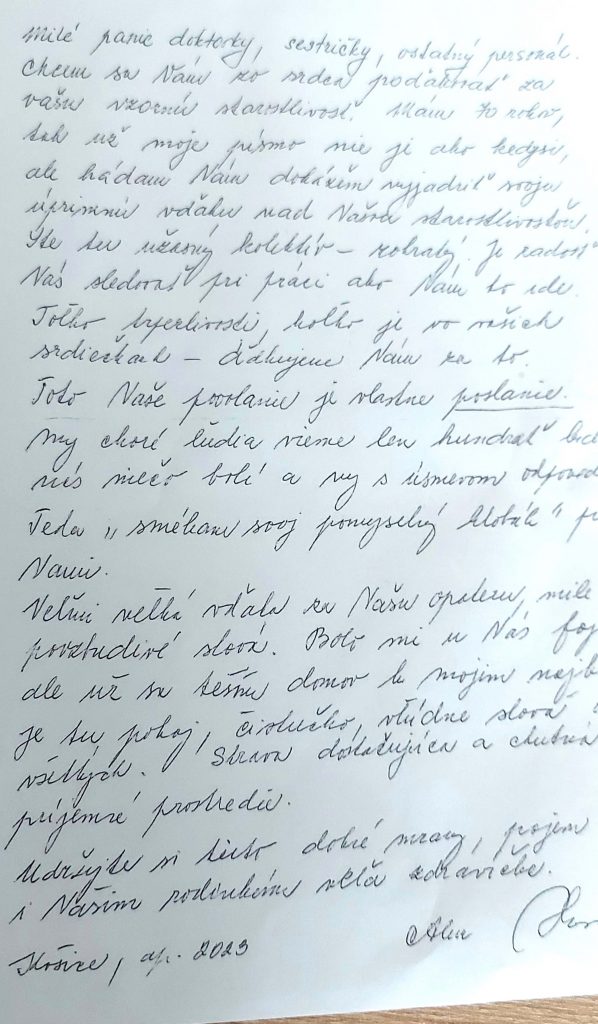 Milé panie doktorky, sestričky, ostatný personál.
Chcem sa Vám zo srdca poďakovať za
vašu vzornú starostlivosť. Mám 70 rokov,
tak už moje písmo nie je ako kedysi,
ale hádam Vám dokážem vyjadriť svoju
úprimnú vďaku nad Vašou starostlivosťou.
Ste tu úžasný kolektív – zohratý. Je radosť
Vás sledovať pri práci ako Vám to ide.
Toľko trpezlivosti, koľko je vo vašich
srdiečkach – ďakujeme Vám za to.
Toto Vaše povolanie je vlastne poslanie.
My choré ľudia vieme len hundrať
nás niečo bolí a vy s úsmevom
Teda „smékam svoj pomyselný klobúk"
Vami.
Veľmi veľká vďaka za Vašu opateru, milé
povzbudivé slová. Bolo mi u Vás
ale už sa teším domov k mojim
je tu pokoj, čistučko, vľúdne slová
všetkých. Strava dostačujúca a chutná
príjemné prostredie.
Udržujte si tieto dobré mravy, prajem
i Vašim rodinkám veľa zdravíčka.
Košice, ap. 2023